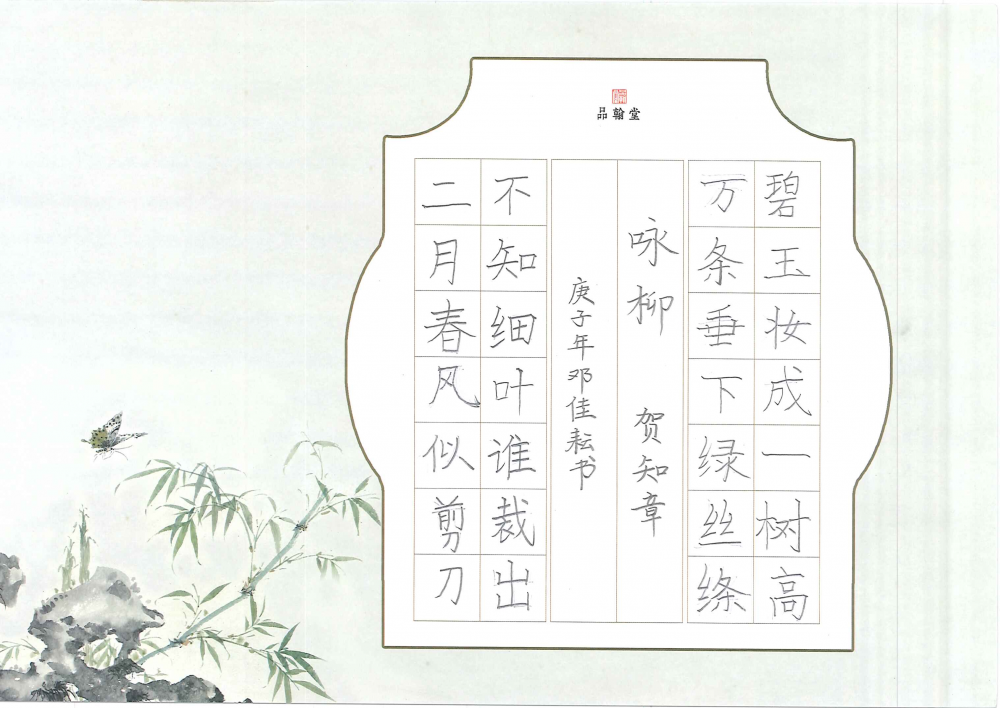 品翰堂
碧玉妆成一树高
万条垂下绿丝绦
咏柳 贺知章
庚子年邓佳耘书
不知细叶谁裁出
二月春风似剪刀